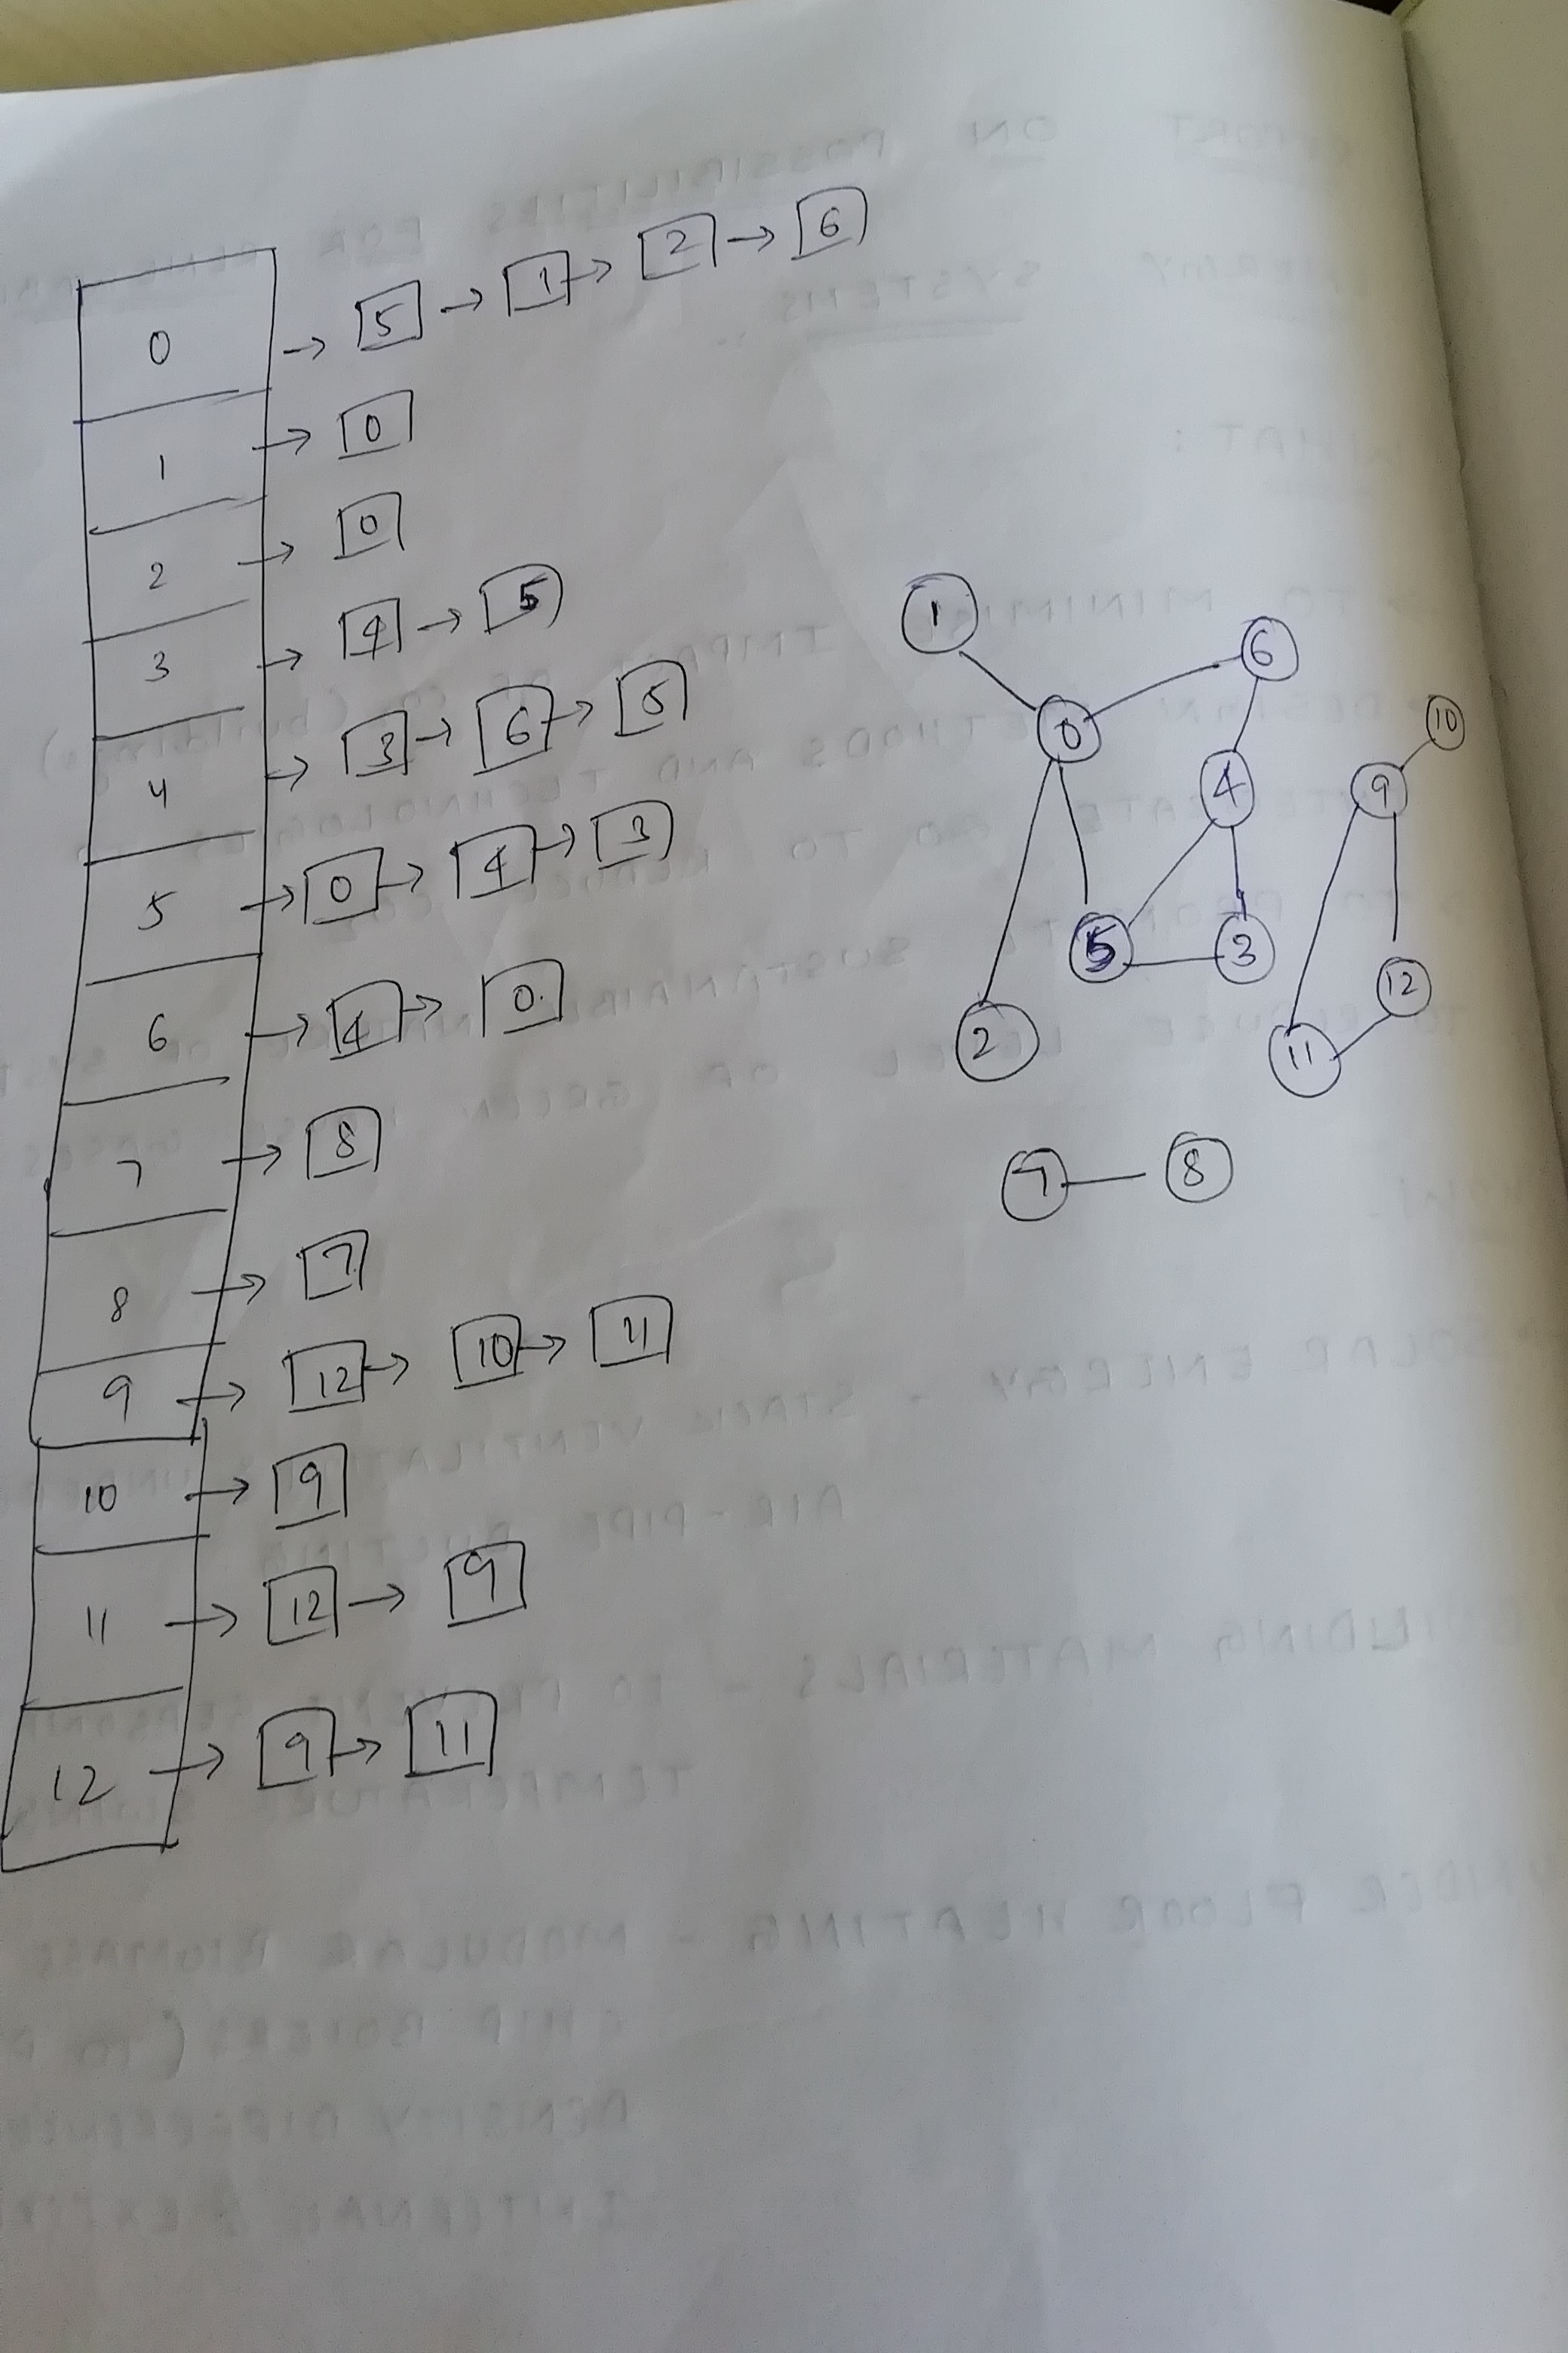 0 → 5 → 1 → 2 → 6
1 → 0
2 → 0
3 → 4 → 5
4 → 3 → 6 → 5
5 → 0 → 4 → 3
6 → 4 → 0
7 → 8
8 → 7
9 → 12 → 10 → 11
10 → 9
11 → 12 → 9
12 → 9 → 11
1
6
0
10
4
9
5
3
12
2
11
7
8